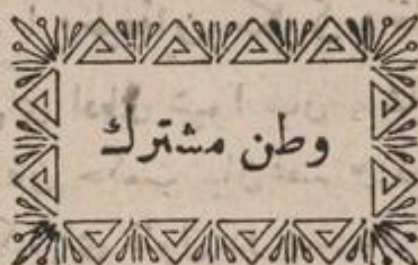 وطن مشترك